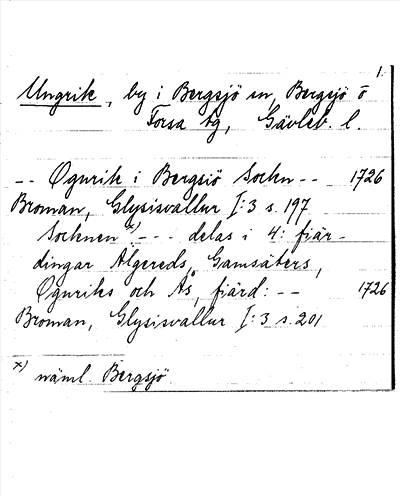 1.
Ungrik, by i Bergsjö sn, Bergsjö o
Forsa tg, Gävleb. l.
-- Ogurik i Bergsiö Sockn -- 1726
Broman, Glysisvallur I:3 s. 197
Socknen x) --- delas i 4: fiär-
dingar Älgereds, Gamsäters,
Oguriks och Ås, fiärd: -- 1726
Broman, Glysisvallur I:3 s. 201
x) näml. Bergsjö